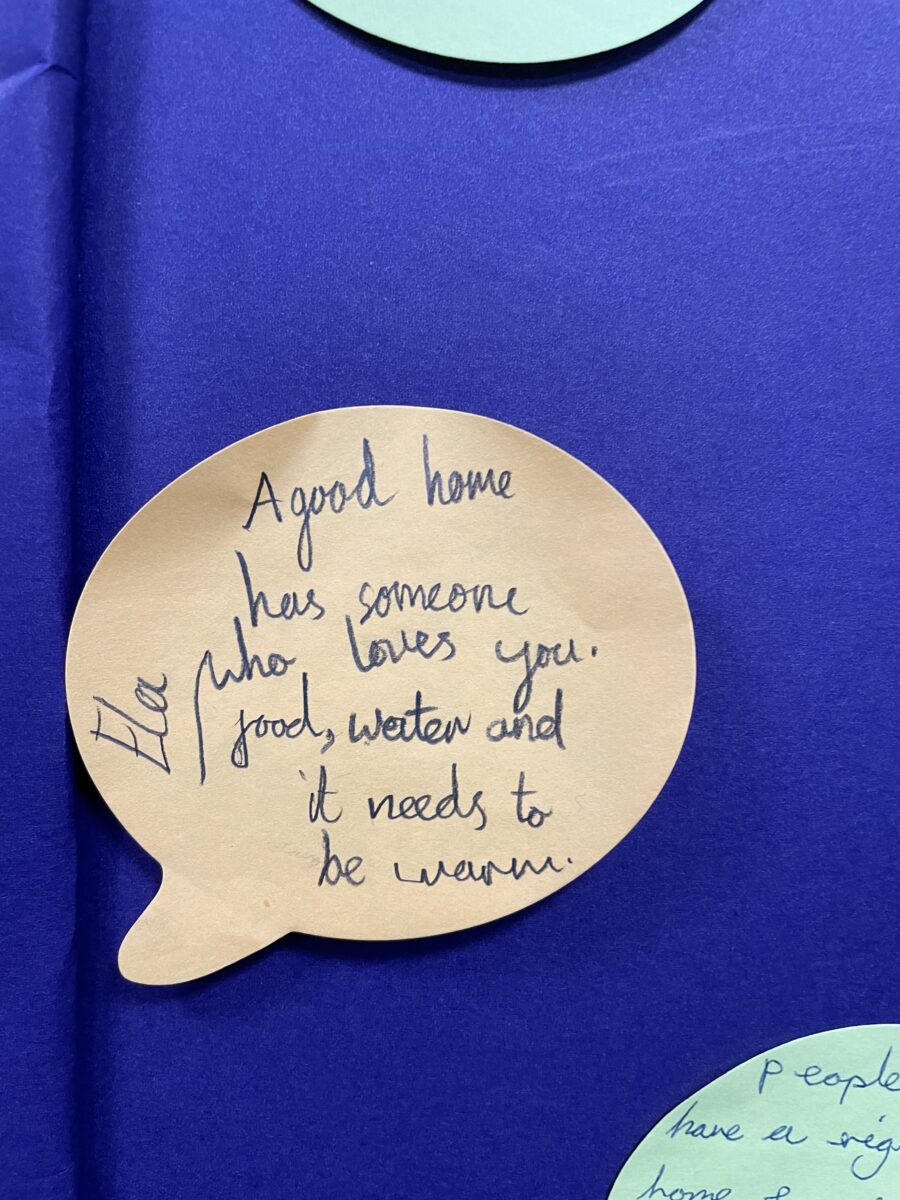 A good home
has someone
who loves you.
food, water and
it needs to
be warm.
Ela
People
have a
home